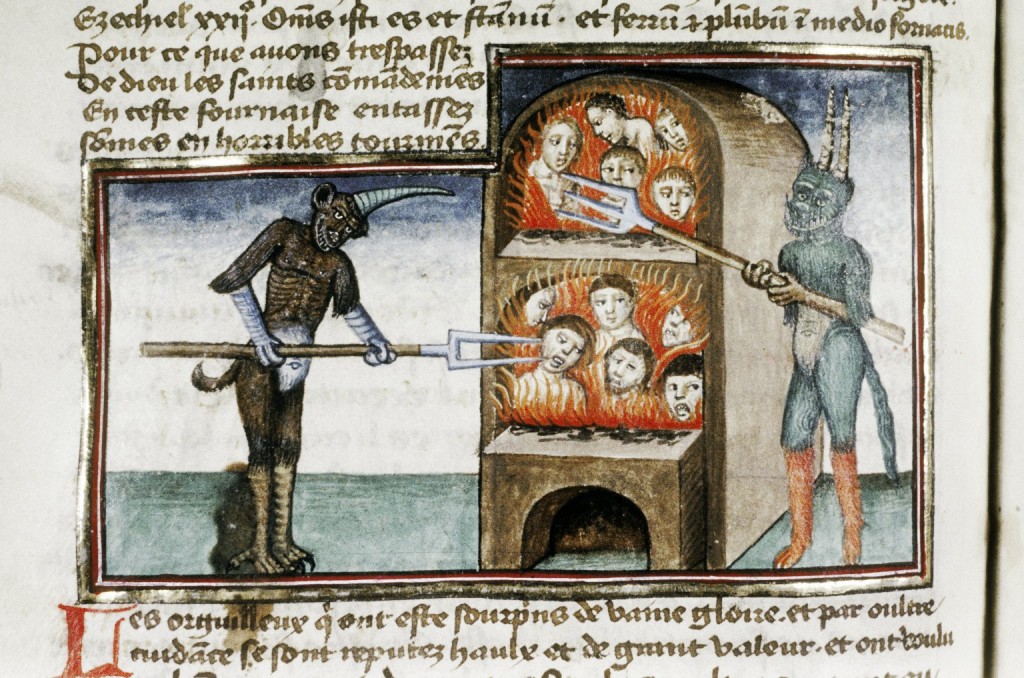 Ezechiel xxijº. Om̄s isti es et stānū. et ferrū ⁊ plūbū ī medio fornacis.
Pour ce que auons trespassez
De dieu les saints cōmādemēs
En ceste fournaise entassez
Sōmes en horribles tourmēs
Les orguilleux q̄ ont este sourprīs de vaine gloire. et par oultre
cuidāce se sont reputez haulx et de grant valeur. et ont voulu